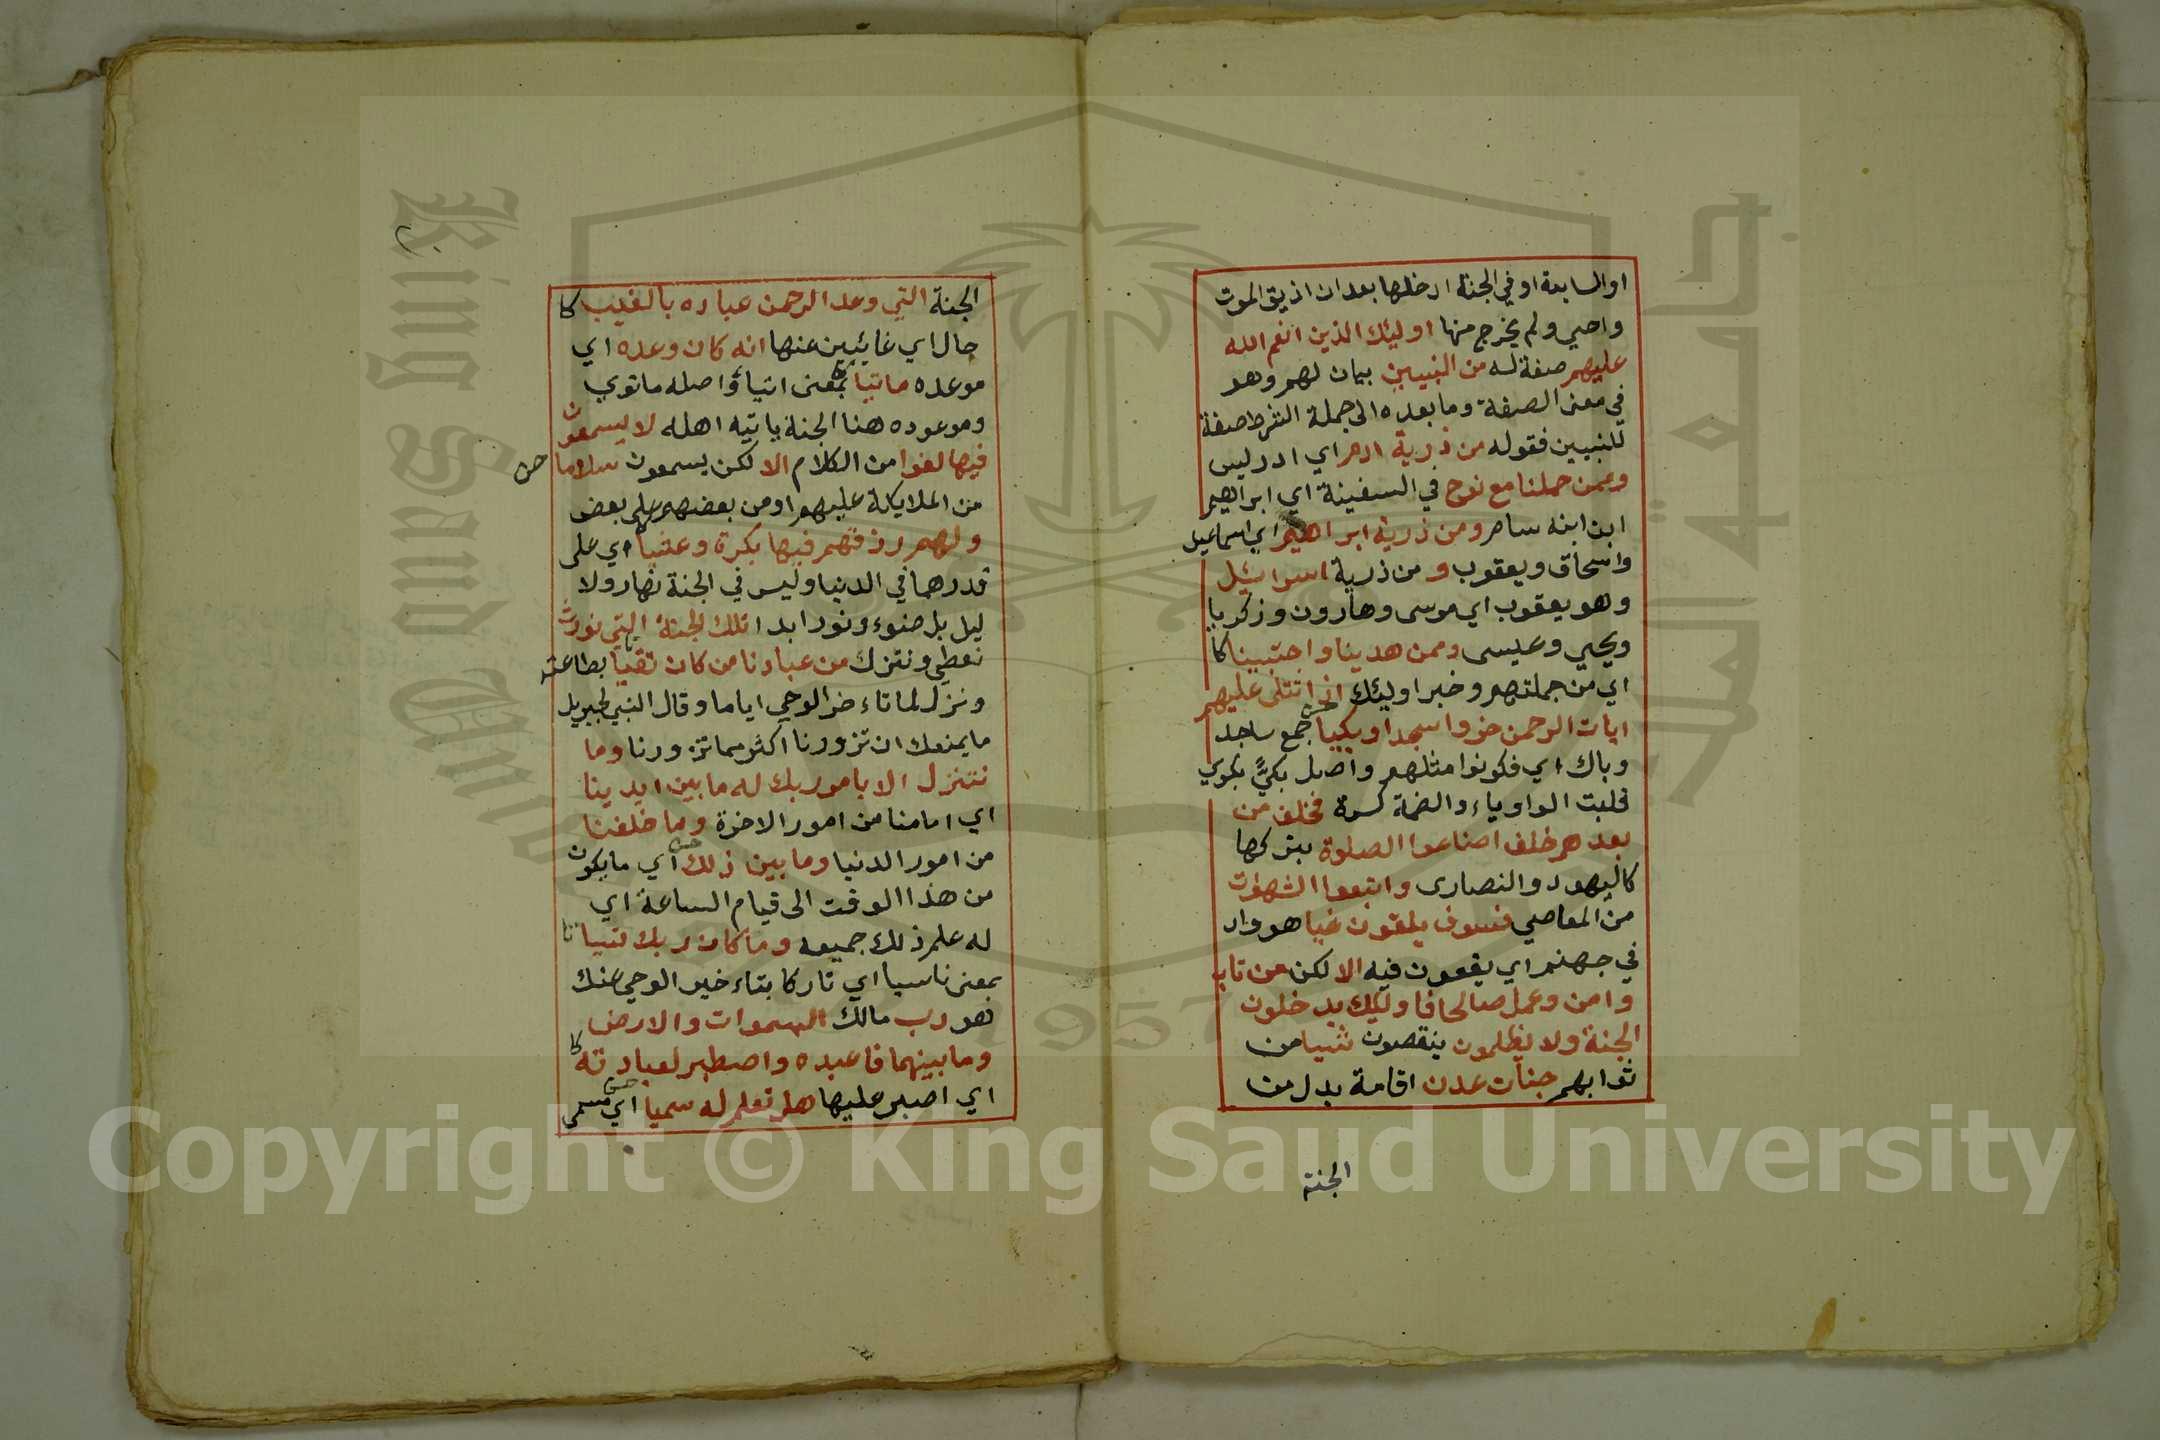 او السابعة او في الجنة ادخلها بعد ان اذيق الموت
واحيي ولم يخرج منها اوليك الذين انعم الله
عليهم صفة له من النبيين بيان لهم وهو
في معنى الصفة وما بعده الى جملة الشرط صفة
للنبيين فقوله من ذرية ادم اي ادريس
وممن حملنا مع نوح في السفينة اي ابراهيم
ابن ابنه سام ومن ذرية ابراهيم اي اسماعيل
واسحاق ويعقوب و من ذرية اسرائيل
وهو يعقوب اي موسى وهارون وزكريا
ويحيي وعيسى وممن هدينا واجتبينا كا
اي من جملتهم وخبر اوليك اذا تتلى عليهم
ايات الرحمن خروا سجدا وبكيا جمع ساجد
وباك اي فكونوا مثلهم واصل بكيٍّ بكوي
قلبت الواو ياء والضمة كسرة فخلف من
بعدهم خلف اضاعوا الصلوة بتركها
كاليهود والنصارى واتبعوا الشهوات
من المعاصي فسوف يلقون غيا هو واد
في جهنم اي يقعون فيه الا لكن من تاب
وامن وعمل صالحا فاوليك يدخلون
الجنة ولا يظلمون ينقصون شيا من
ثوابهم جنات عدن اقامة بدل من
الجنة
الجنة التي وعد الرحمن عباده بالغيب كا
حال اي غائبين عنها انه كان وعده اي
موعده ماتيا بمعنى اتيا واصله ماتوي
وموعوده هنا الجنة ياتيه اهله لا يسمعون
فيها لغوا من الكلام الا لكن يسمعون سلاما
من الملايكة عليهم او من بعضهم على بعض
ولهم رزقهم فيها بكرة وعشيا اي على
قدرهما في الدنيا وليس في الجنة نهار ولا
ليل بل ضوء ونور ابدا تلك الجنة التي نورث
نعطي وننزل من عبادنا من كان تقيا بطاعته
ونزل لما تاخر الوحي اياما وقال النبي لجبريل
ما يمنعك ان تزورنا اكثر مما تزورنا وما
نتنزل الا بامر ربك له ما بين ايدينا
اي امامنا من امور الاخرة وما خلفنا
من امور الدنيا وما بين ذلك اي ما يكون
من هذا الوقت الى قيام الساعة اي
له علم ذلك جميعه وما كان ربك نسيا
بمعنى ناسيا اي تاركا بتاخير الوحي عنك
هو رب مالك السموات والارض
وما بينهما فاعبده واصطبر لعبادته كا
اي اصبر عليها هل تعلم له سميا اي مسمى
King Saud University
جامعة الملك
1957
Copyright © King Saud University